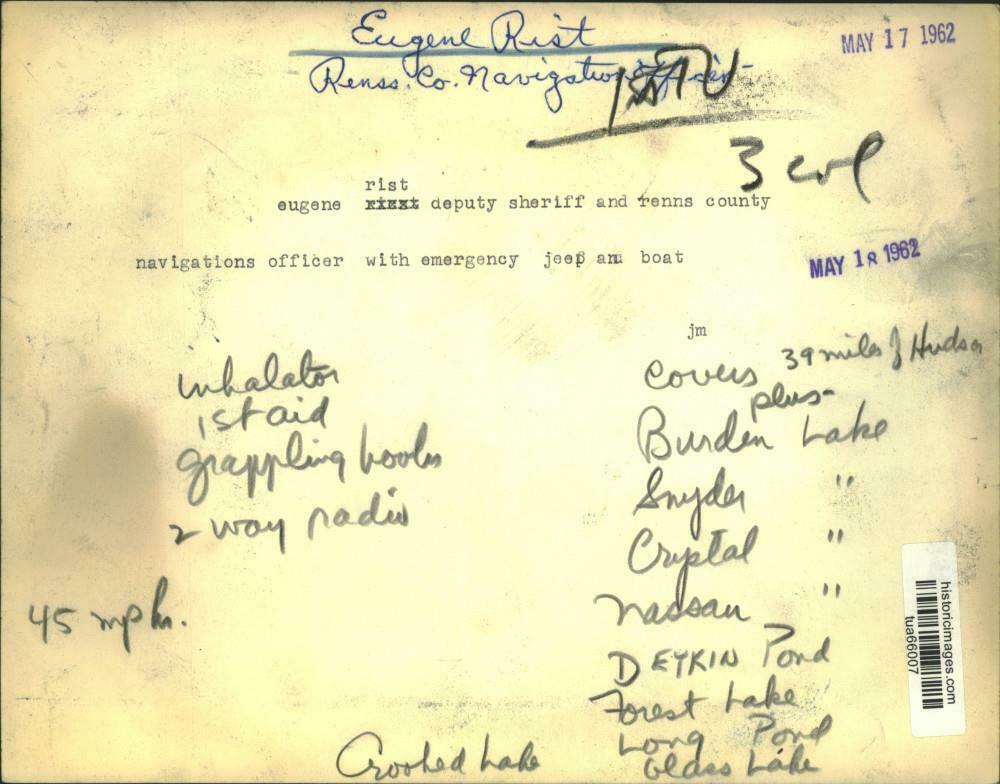 Eugene Rist
MAY 17 1962
Renss. Co. Navigation
3 col
rist
eugene rixxt deputy sheriff and renns county
navigations officer with emergency jeep an boat
MAY 18 1962
jm
inhalator
1st aid
grappling hooks
2 way radio
45 mphr.
covers 39 miles of Hudson
plus-
Burden Lake
Snyder "
Crystal "
Nassau "
DEYKIN Pond
Forest Lake
Long Pond
Glass Lake
Crooked Lake
historicimages.com
tua66007